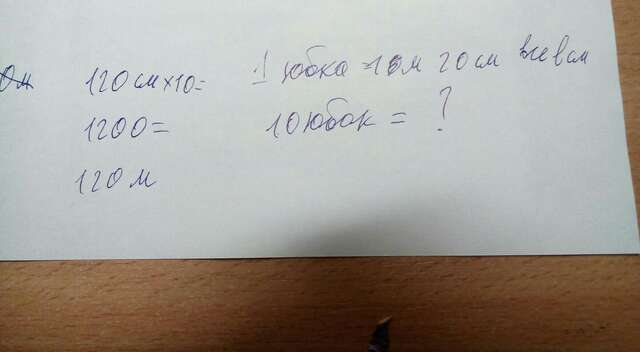 120см×10=
1200=
120 м
1 юбка = 10м 20см все в см
10 юбок = ?